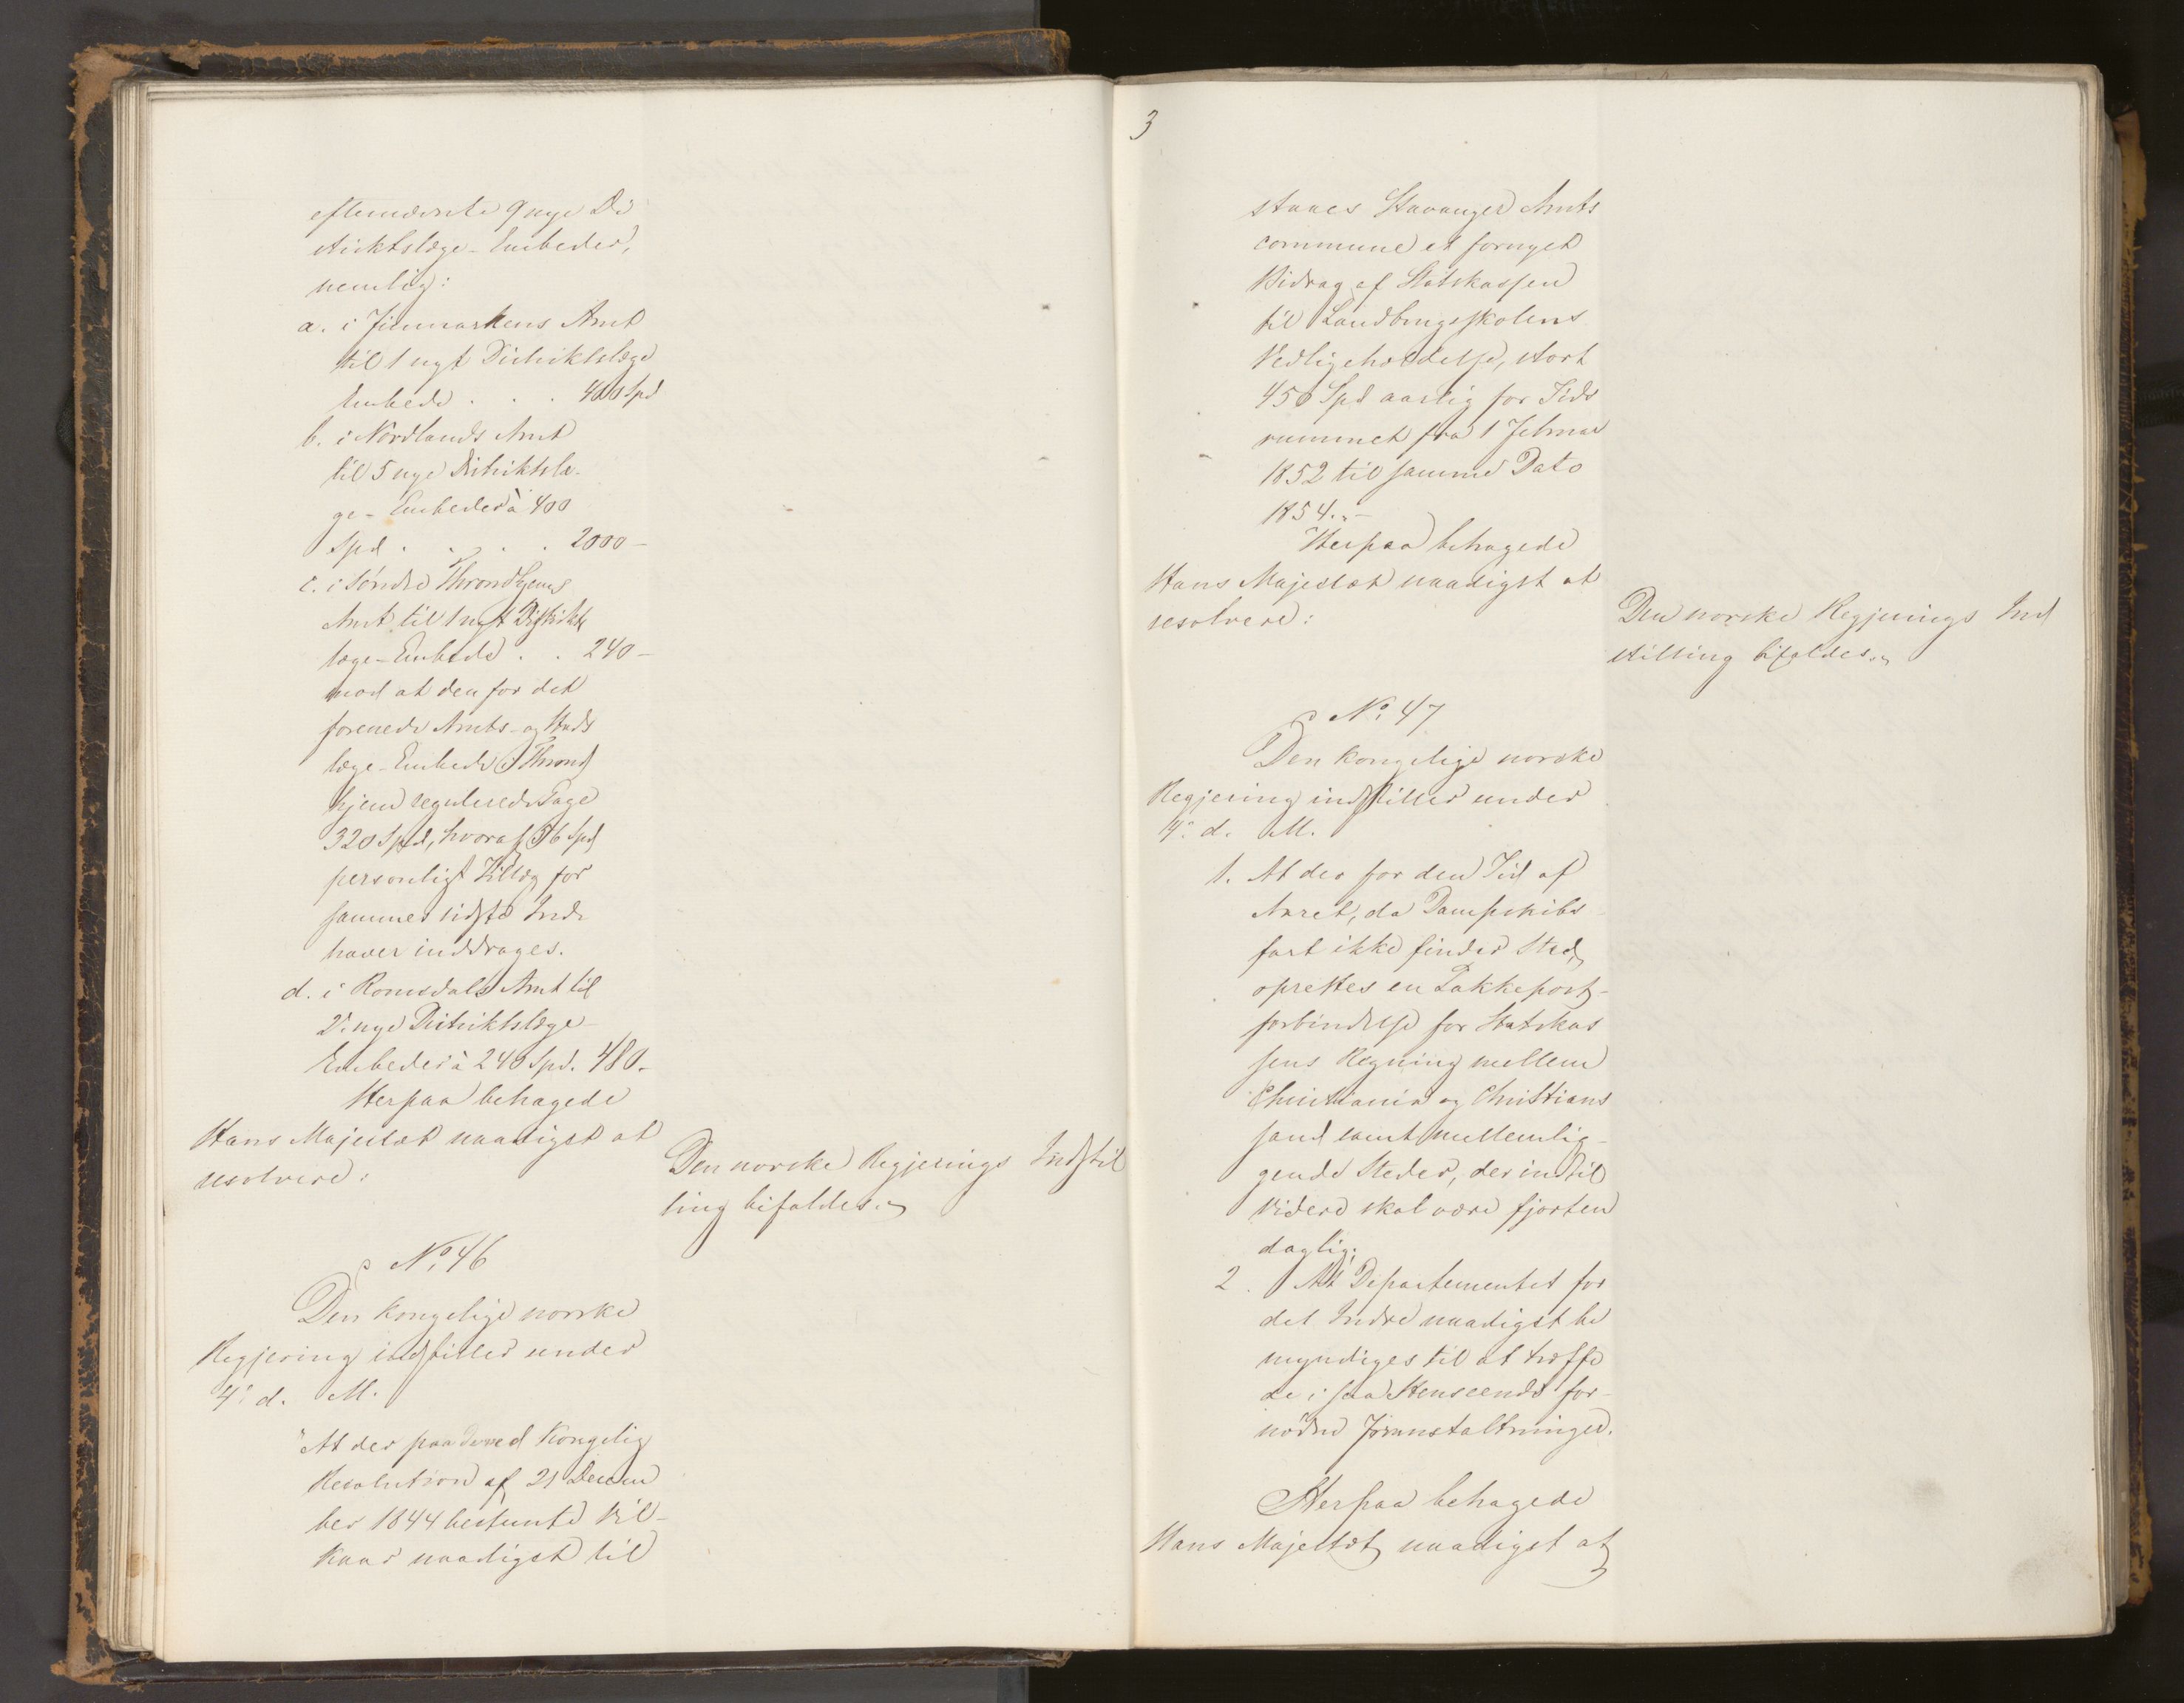 efternævnte 9 nye Di
striktslæge-Embeder,
nemlig:
a. i Finmarkens Amt
til 1 nyt Distriktslæge
Embede . . . 400 Spd
b. i Nordlands Amt
til 5 nye Distriktslæ-
ge-Embeder à 400
Spd . . . . 2000 -
c. i Søndre Throndhjems
Amt til 1 nyt Distrikts
læge-Embede . . 240 -
mod at den for det
forenede Amts- og Stads
læge-Embede i Thrond
hjem regulerede Gage
320 Spd, hvoraf 56 Spd
personligt Tillæg for
sammes sidste Inde
haver inddrages.
d. i Romsdals Amt til
2 nye Distriktslæge-
Embeder à 240 Spd. 480.-
Herpaa behagede
Hans Majestæt naadigst at
resolvere:
Den norske Regjerings Indstil
ling bifaldes.
No. 46
Den kongelige norske
Regjering indstiller under
4. d. M.
"At der paa de ved Kongelig
Resolution af 21 Decem
ber 1844 bestemte Vil-
kaar naadigst til
3
staaes Stavanger Amts
commune et fornyet
Bidrag af Statskassen
til Landbrugsskolens
Vedligeholdelse, stort
450 Spd aarlig for Tids
rummet fra 1 Februar
1852 til samme Dato
1854."-
Herpaa behagede
Hans Majestæt naadigst at
resolvere:
Den norske Regjerings Ind
stilling bifaldes.
No. 47
Den kongelige norske
Regjering indstiller under
4. d. M.
1. At der for den Tid af
Aaret, da Dampskibs
fart ikke finder Sted,
oprettes en Pakkepost-
forbindelse for Statskas
sens Regning mellem
Christiania og Christians
sand samt mellemlig-
gende Steder, der indtil
videre skal være fjorten
daglig;
2. At Departementet for
det Indre naadigst be
myndiges til at træffe
de i saa Henseende for-
nödne Foranstaltninger.
Herpaa behagede
Hans Majestæt naadigst at